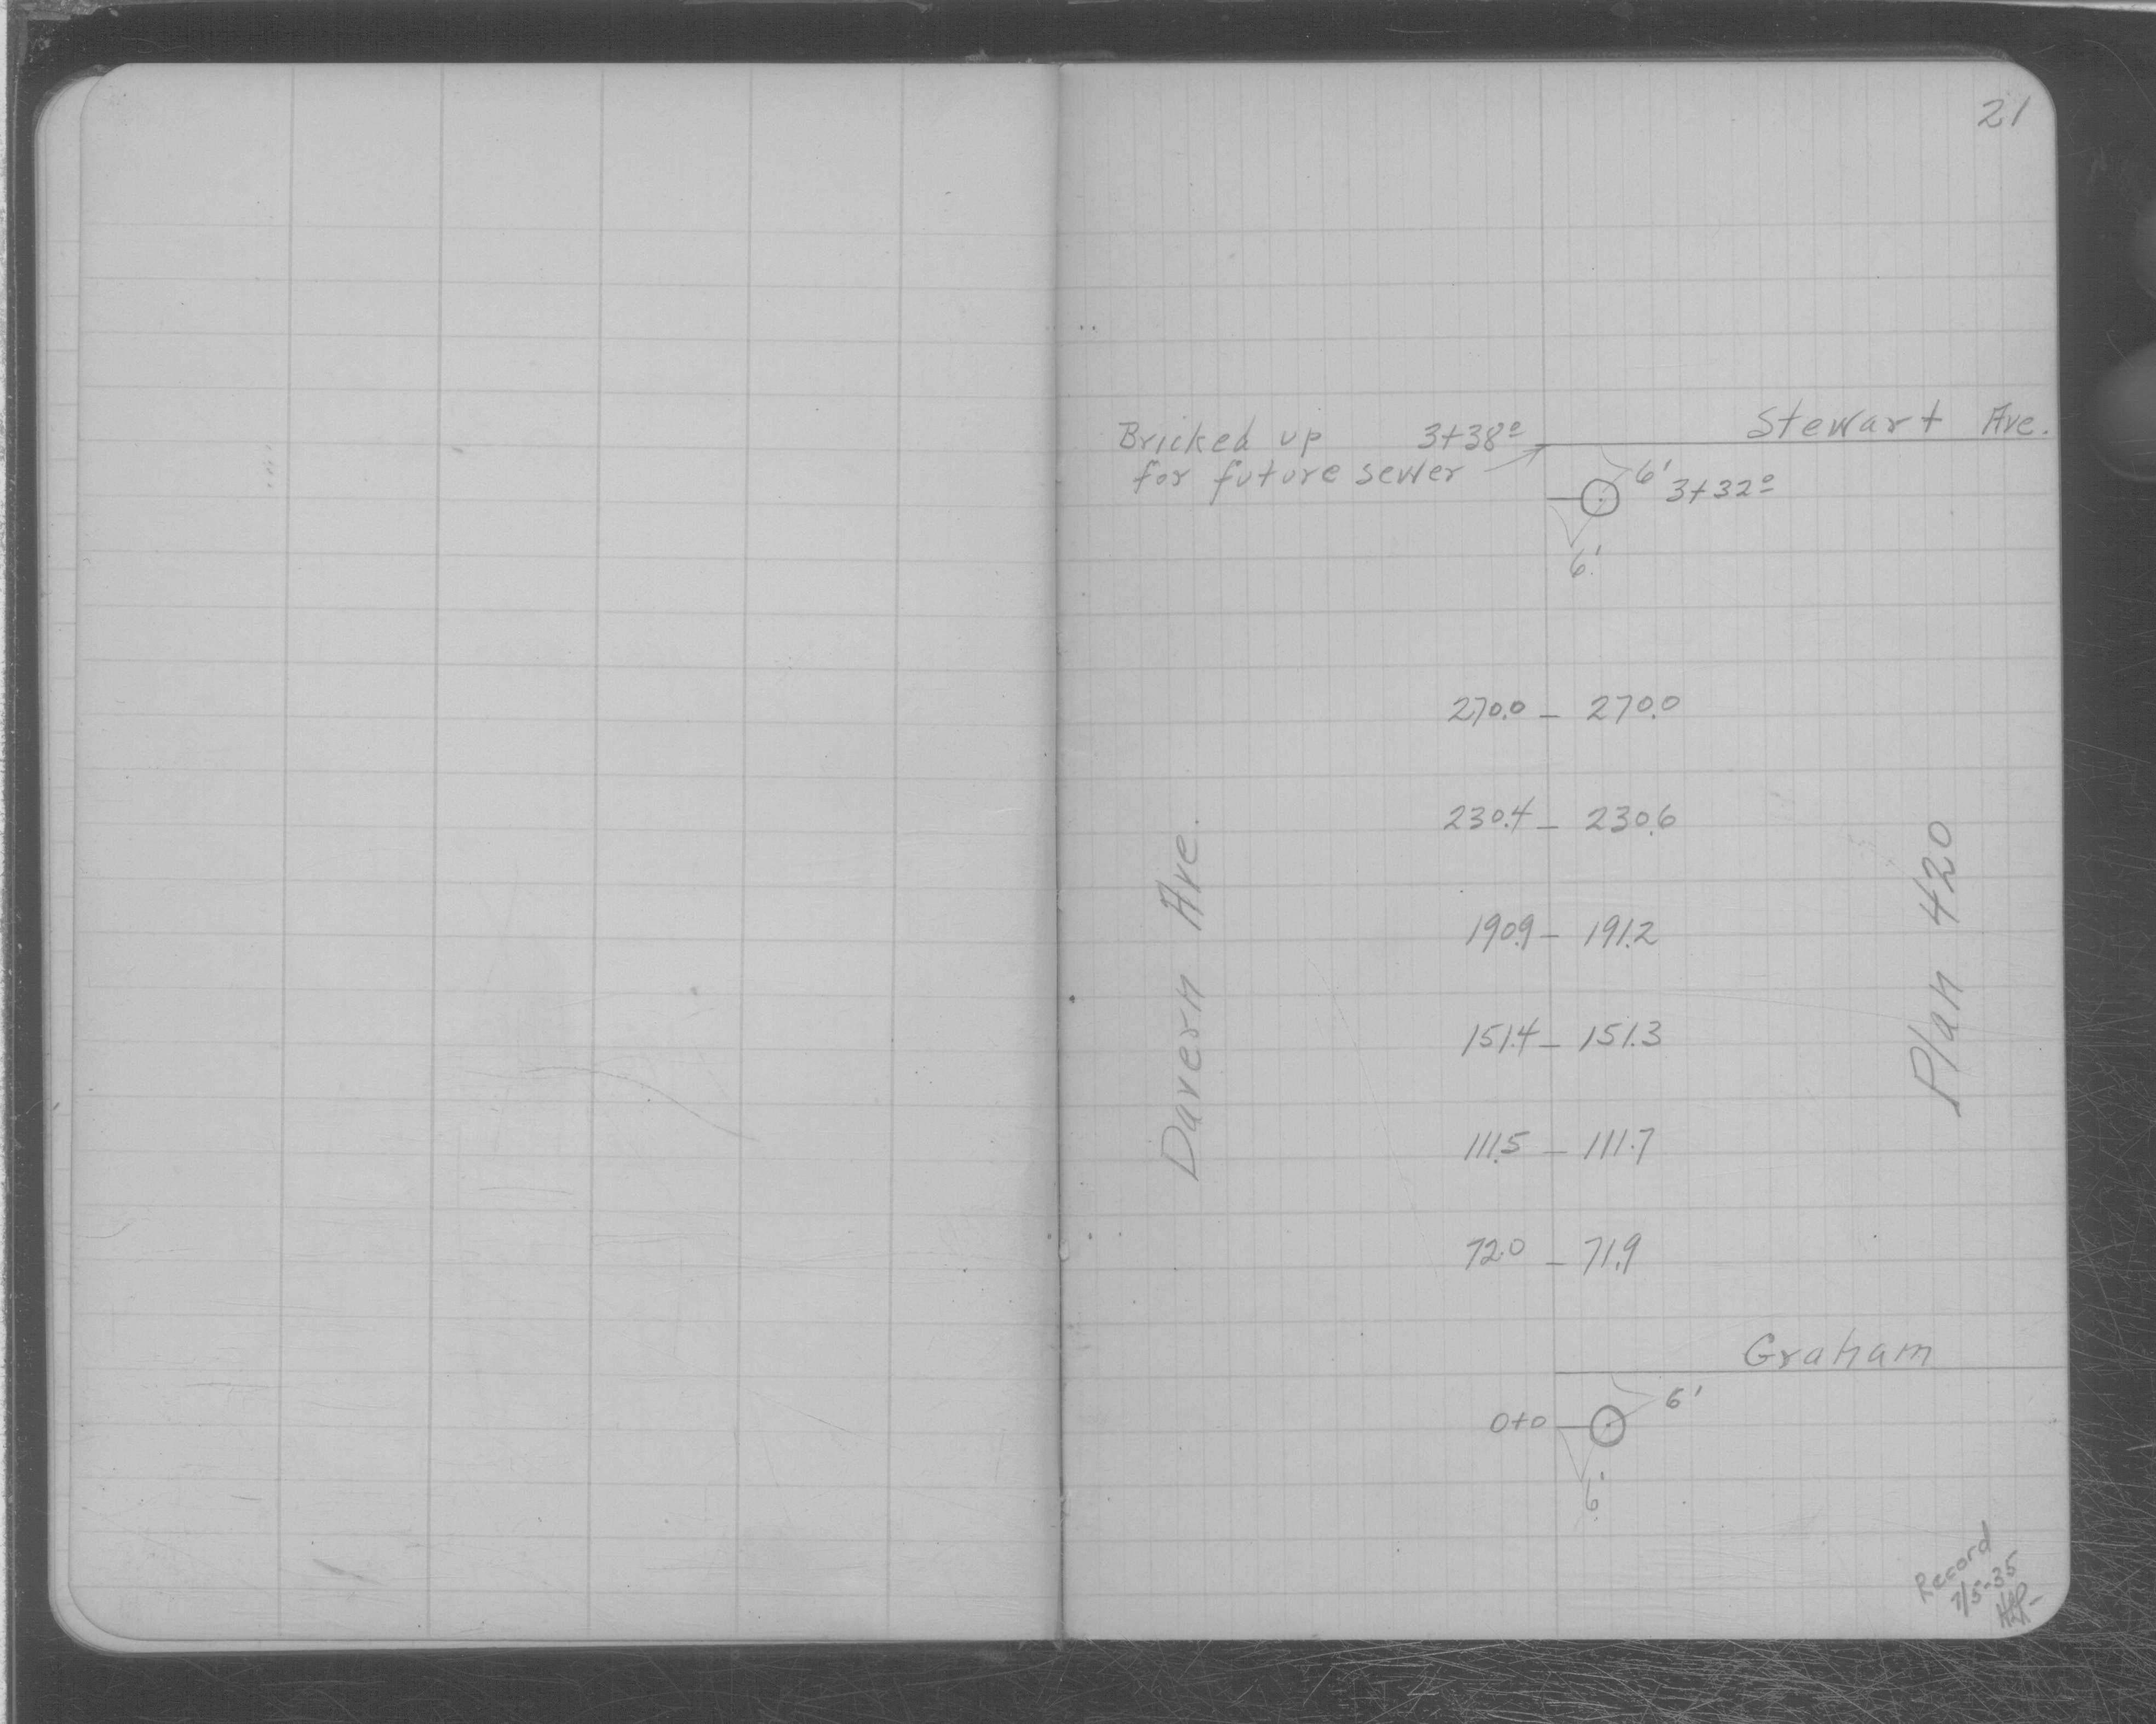 21
Stewart Ave.
Bricked up 3+38º
for future sewer
6' 3+32º
6'
270.0 – 270.0
230.4 – 230.6
190.9 – 191.2
151.4 – 151.3
111.5 – 111.7
72.0 – 71.9
Davern Ave.
Plan 420
Graham
6'
0+0
6'
Record
7/5-35